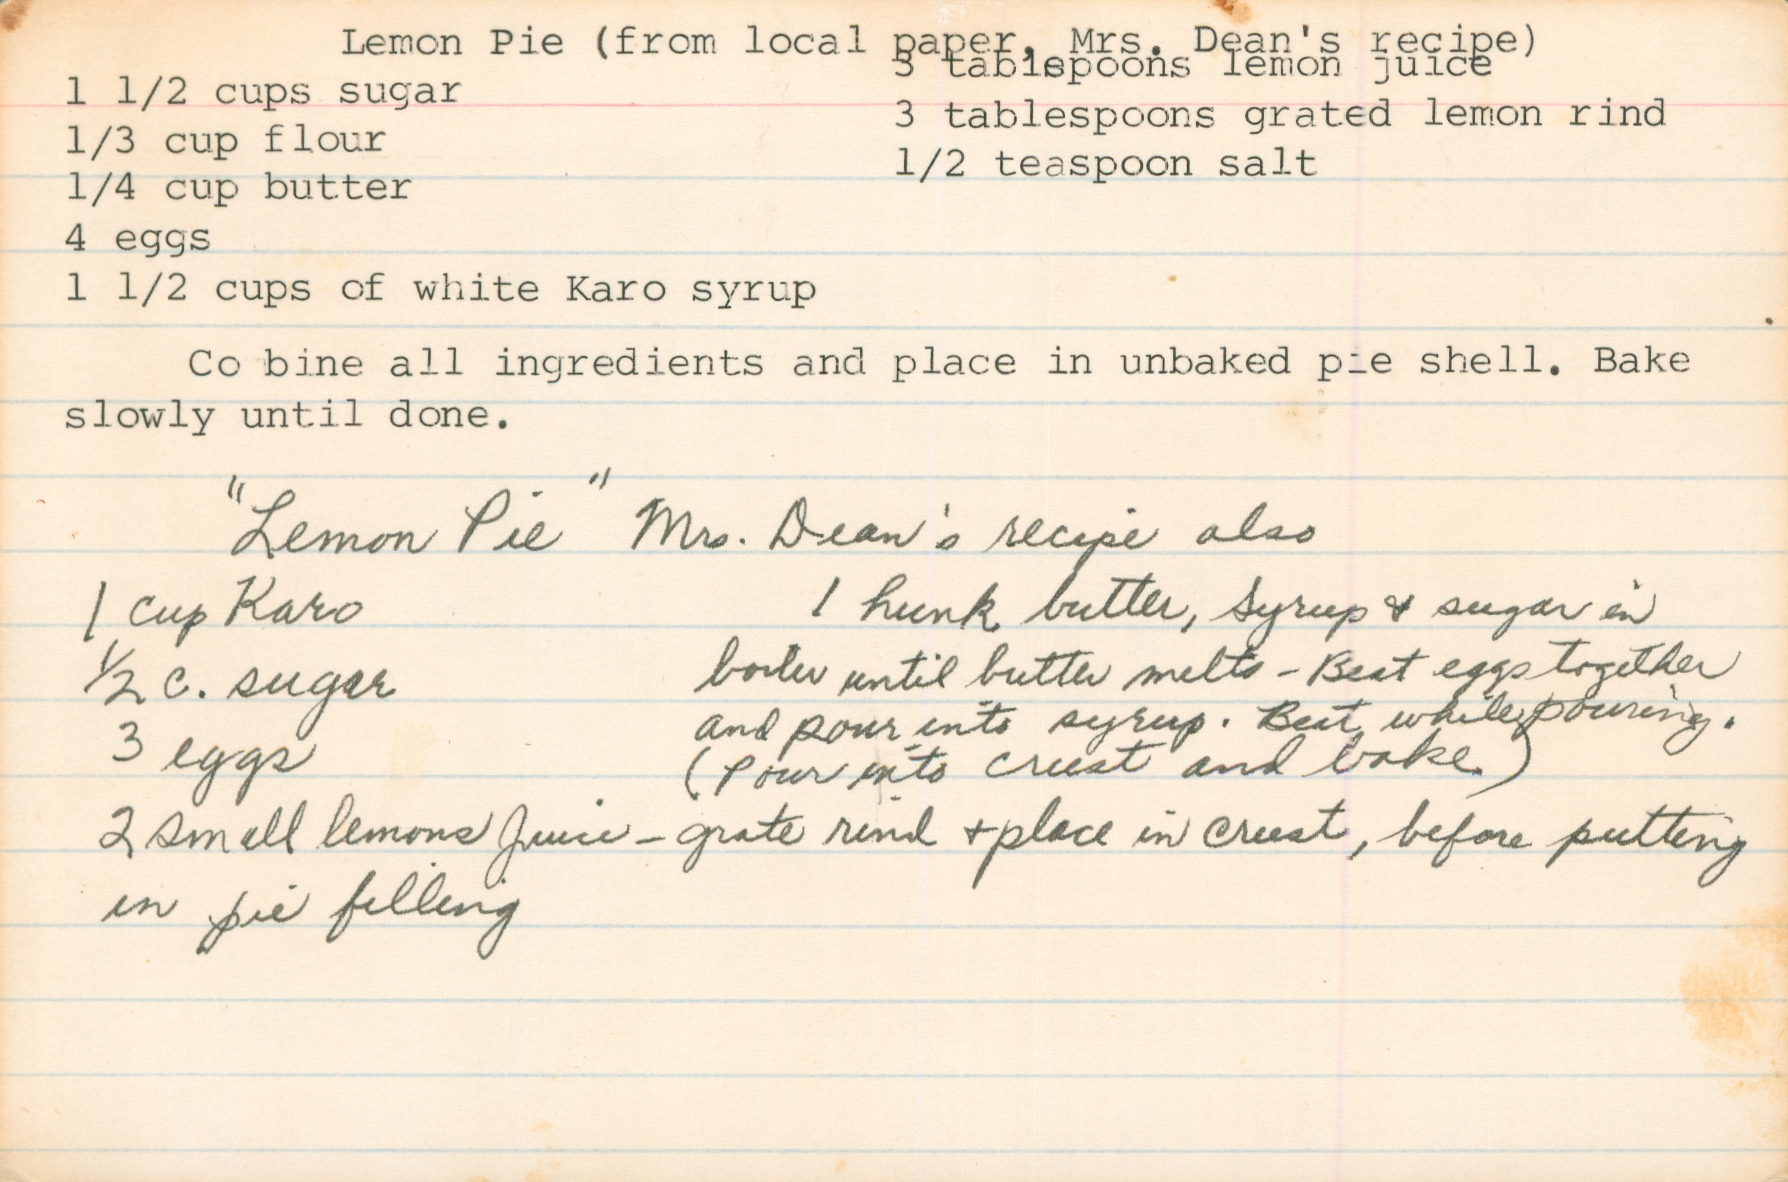 Lemon Pie (from local paper, Mrs. Dean's recipe)
1 1/2 cups sugar
1/3 cup flour
1/4 cup butter
4 eggs
1 1/2 cups of white Karo syrup
3 tablespoons lemon juice
3 tablespoons grated lemon rind
1/2 teaspoon salt
Co bine all ingredients and place in unbaked pie shell. Bake
slowly until done.
"Lemon Pie" Mrs. Dean's recipe also
1 cup Karo
1/2 c. sugar
3 eggs
1 hunk butter, syrup & sugar in
boiler until butter melts - Beat eggs together
and pour into syrup. Beat while pouring.
(Pour into crust and bake.)
2 small lemons juice - grate rind + place in crust, before putting
in pie filling